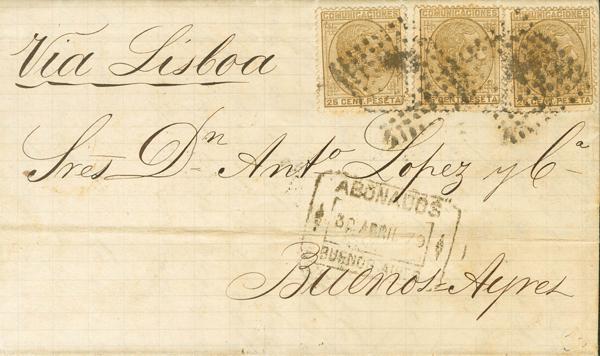 COMUNICACIONES COMUNICACIONES COMUNICACIONES
25 CENT. PESETA 25 CENT. PESETA 25 CENT. PESETA
Via Lisboa
Sres Dn Anto Lopez y Ca
"ABONADOS"
30 ABRIL 79
BUENOS AIRES
Buenos=Ayres